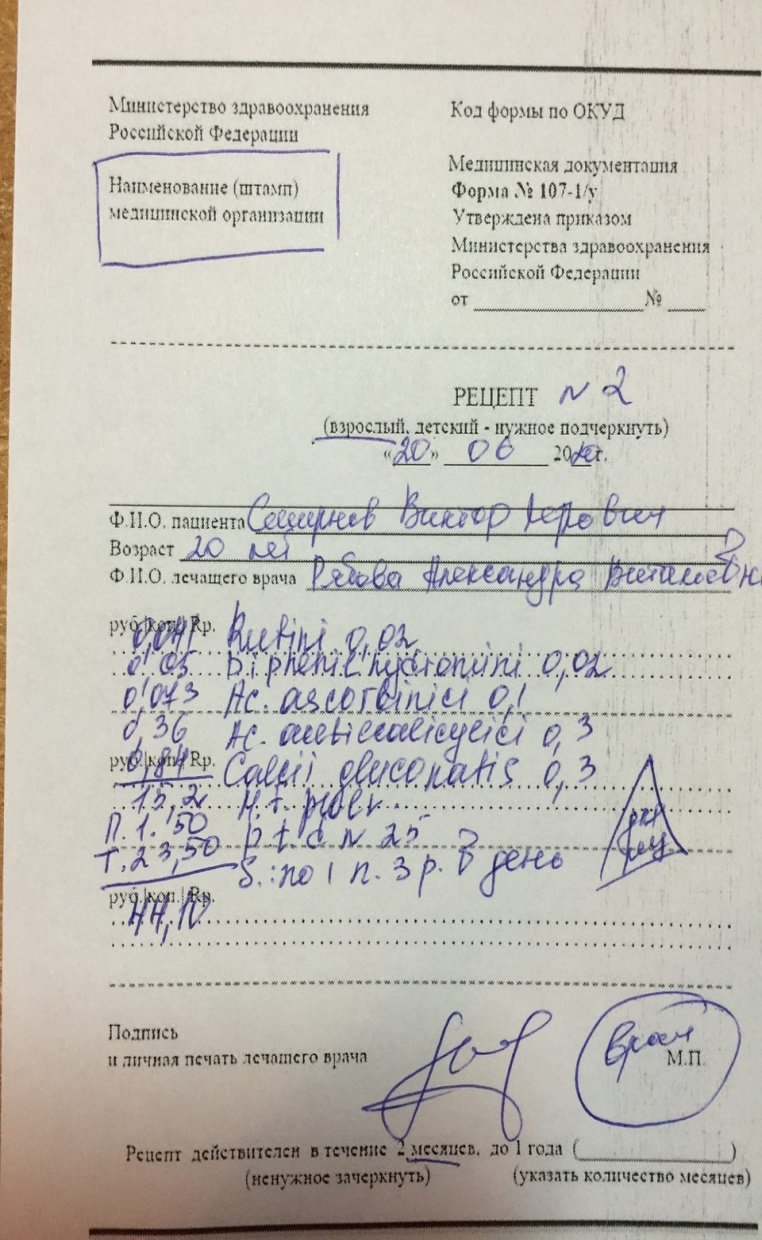 Министерство здравоохранения
Российской Федерации
Наименование (штамп)
медицинской организации
Код формы по ОКУД
Медицинская документация
Форма № 107-1/у
Утверждена приказом
Министерства здравоохранения
Российской Федерации
от № 
РЕЦЕПТ N 2
(взрослый, детский - нужное подчеркнуть)
«20» 06 2020г.
Ф.И.О. пациента Смирнов Виктор
Возраст 20 лет
Ф.И.О. лечащего врача Рябова Александра Витальевна
руб.|коп.| Rp.
0,041 Rutini 0,02
0,05 0,02
0,073 Ac. ascorbinici 0,1
0,36 Ac. 0,3
руб.|коп.| Rp.
0,84 Calcii gluconatis 0,3
15,2 M.f. pulv.
П. 1. 50 D t d N 25
Т. 23,50 S.: по 1 п. 3 р. в день
руб.|коп.| Rp.
44,10
Подпись
и личная печать лечащего врача
врач
М.П.
Рецепт действителен в течение 2 месяцев, до 1 года ( )
(ненужное зачеркнуть) (указать количество месяцев)